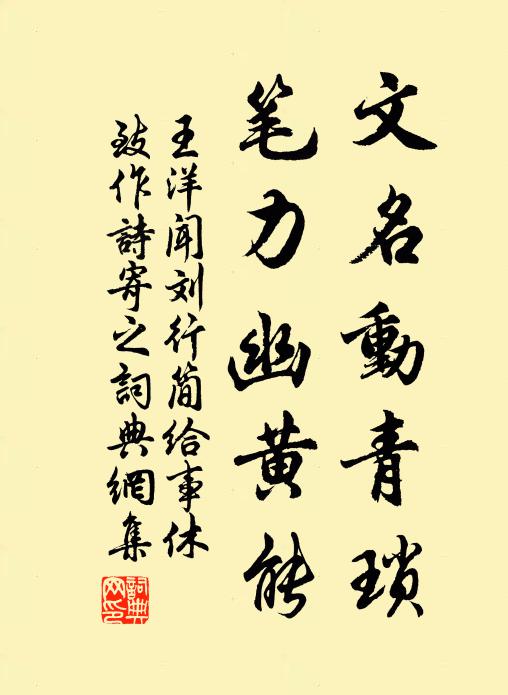 文名動青瑣
笔力幽黄能
王洋闻刘行简给事休
致作詩寄之詞典網集
詞典網印